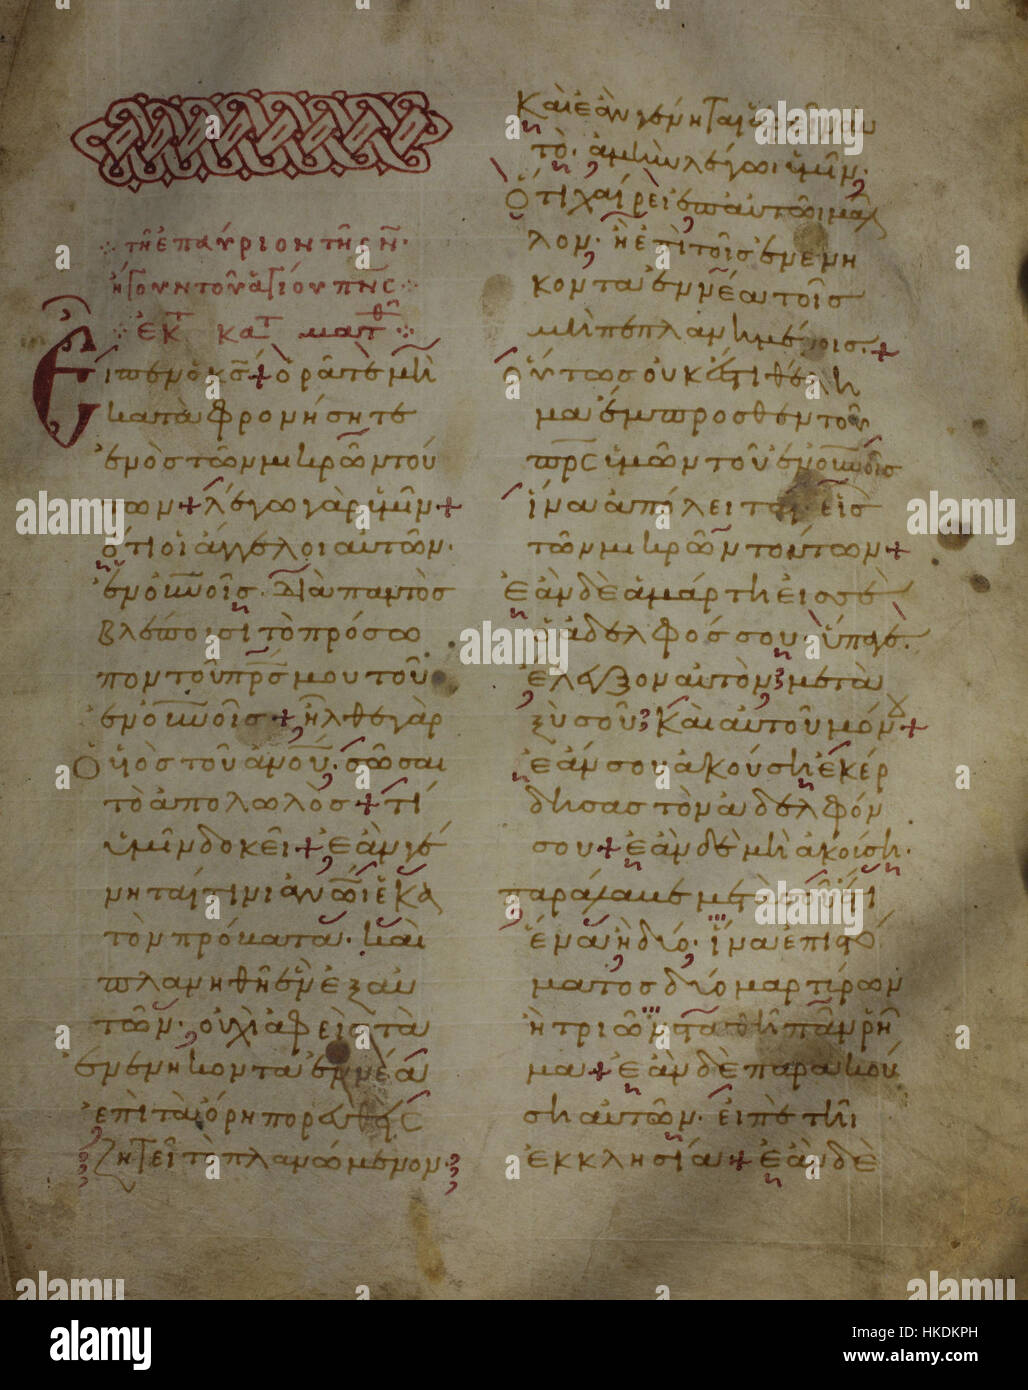 τῆ ἐπαύριον τῆς ν̅
ἤτουν τοῦ ἁγίου πν̅ς
ἐκ τ κατ ματθ
Εἶπεν ὁ κ̅ς + ὁρᾶτε μὴ
καταφρονήσητε
ἑνὸς τῶν μικρῶν τού
των + λέγω γὰρ ὑμῖν +
ὅτι οἱ ἄγγελοι αὐτῶν
ἐν ο̅υ̅νοῖς. διὰ παντὸς
βλέπουσι τὸ πρόσω
πον τοῦ π̅ρ̅ς μου τοῦ
ἐν ο̅υ̅νοῖς + ἦλθε γὰρ
ὁ υἱὸς τοῦ α̅ν̅ο̅υ̅. σῶσαι
τὸ ἀπολωλὸς + τί
ὑμῖν δοκεῖ + ἐὰν γέ
νηται τινι α̅ν̅ω̅ ἑκα
τὸν πρόβατα. καὶ
πλανηθῆ ἓν ἐξ αὐ
τῶν. οὐχὶ ἀφεὶς τὰ
ἐνενήκοντα ἐννέα
ἐπὶ τὰ ὄρη πορευθεὶς
ζητεῖ τὸ πλανώμενον.
Καὶ ἐὰν γένηται εὑρεῖν αυ
τὸ. ἀμὴν λέγω ὑμῖν.
ὅτι χαίρει ἐπ αυτῶ μᾶλ
λον. ἢ ἐπὶ τοῖς ἐνενη
κονταεννέα τοῖς
μὴ πεπλανημένοις. +
Οὕτως οὐκ ἔστι θέλη
μα ἔμπροσθεν τοῦ
π̅ρ̅ς ὑμῶν τοῦ ἐν ο̅υ̅νοῖς
ἵνα ἀπόληται εἷς
τῶν μικρῶν τούτων +
ἐὰν δὲ ἁμάρτη εἰς σὲ
ὁ ἀδελφός σου. ὕπαγε.
ἔλεγξον αὐτὸν μετα
ξὺ σοῦ καὶ αυτοῦ μόν +
ἐάν σου ἀκούση ἐκέρ
δησας τὸν ἀδελφόν
σου + ἐὰν δὲ μὴ ἀκούση.
παράλαβε μετὰ σοῦ ἔτι
ἕνα ἢ δύο. ἵνα ἐπὶ στό
ματος δύο μαρτύρων
ἢ τριῶν σταθῆ πᾶν ῥῆ
μα + ἐὰν δὲ παρακού
ση αὐτῶν. εἰπὲ τῆ
ἐκκλησία + ἐὰν δὲ
alamy
Image ID: HKDKPH
www.alamy.com